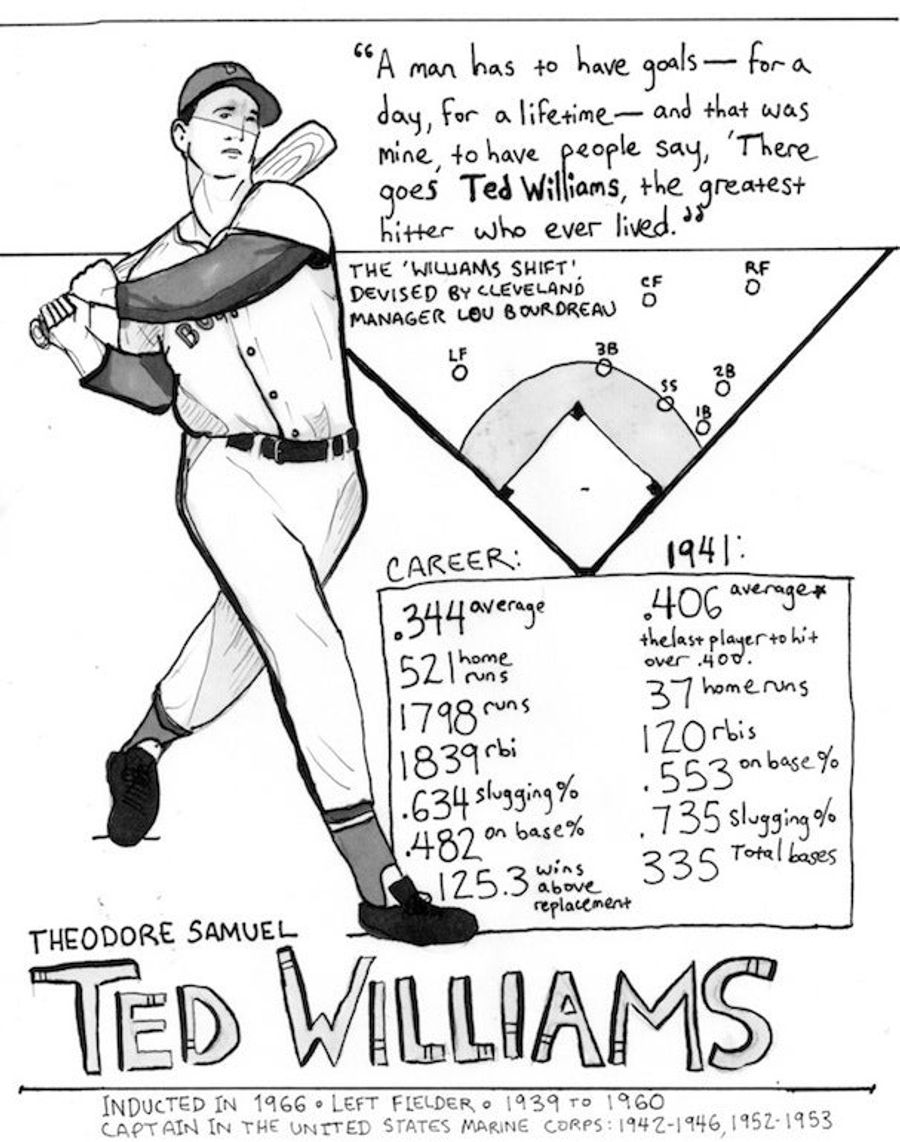 “A man has to have goals — for a
day, for a lifetime — and that was
mine, to have people say, 'There
goes Ted Williams, the greatest
hitter who ever lived.”
B
BO
THE 'WILLIAMS SHIFT'
DEVISED BY CLEVELAND
MANAGER LOU BOURDREAU
CF
RF
LF
3B
SS
2B
1B
CAREER:
.344 average
521 home runs
1798 runs
1839 rbi
.634 slugging %
.482 on base %
125.3 wins above replacement
1941:
.406 average*
the last player to hit
over .400.
37 home runs
120 rbis
.553 on base %
.735 slugging %
335 Total bases
THEODORE SAMUEL
TED WILLIAMS
INDUCTED IN 1966 • LEFT FIELDER • 1939 TO 1960
CAPTAIN IN THE UNITED STATES MARINE CORPS: 1942-1946, 1952-1953